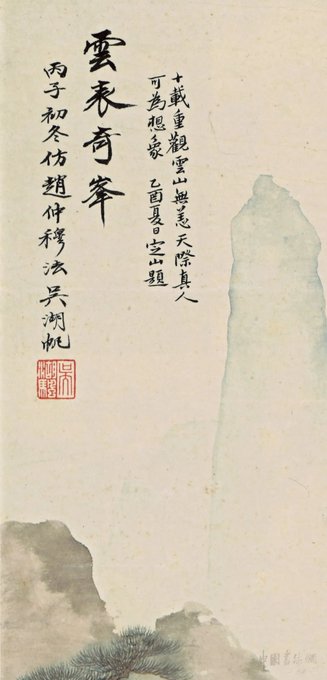 十載重觀雲山無恙天際真人
可為想象 乙酉夏日定山題
雲表奇峯
丙子初冬仿趙仲穆法吳湖帆
中國書法網